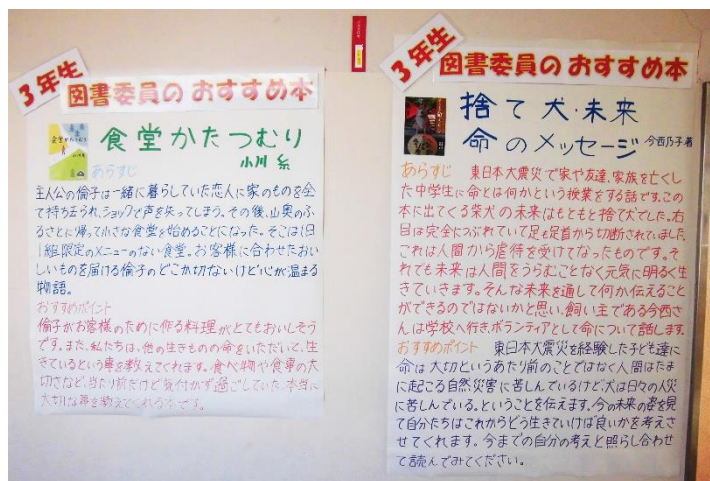 3年生
図書委員のおすすめ本
食堂かたつむり
小川 糸
あらすじ
主人公の倫子は一緒に暮らしていた恋人に家のものを全
て持ち去られ、ショックで声を失ってしまう。その後、山奥のふ
るさとに帰って小さな食堂を始めることになった。そこは1日
1組限定のメニューのない食堂。お客様に合わせたおい
しいものを届ける倫子のどこか切ないけど心が温まる
物語。
おすすめポイント
倫子がお客様のために作る料理がとてもおいしそう
です。また、私たちは、他の生きものの命をいただいて、生
きているという事を教えてくれます。食べ物や食事の大
切さなど、当たり前だけど気付かず過ごしていた、本当に
大切な事を教えてくれる本です。
3年生
図書委員のおすすめ本
捨て犬・未来
命のメッセージ 今西乃子著
あらすじ 東日本大震災で家や友達、家族を亡くし
た中学生に命とは何かという授業をする話です。この
本に出てくる柴犬の未来はもともと捨て犬でした。右
目は完全につぶれていて足も足首から切断されていました。
これは人間から虐待を受けてなったものです。そ
れでも未来は人間をうらむことなく元気に明るく生
きていきます。そんな未来を通して何か伝えること
ができるのではないかと思い、飼い主である今西さ
んは学校へ行き、ボランティアとして命について話します。
おすすめポイント 東日本大震災を経験した子ども達に
命は大切というあたり前のことではなく人間はたま
に起こる自然災害に苦しんでいるけど、犬は日々の人災
に苦しんでいる。ということを伝えます。今の未来の姿を見
て自分たちはこれからどう生きていけば良いかを考えさ
せてくれます。今までの自分の考えと照らし合わせ
て読んでみてください。